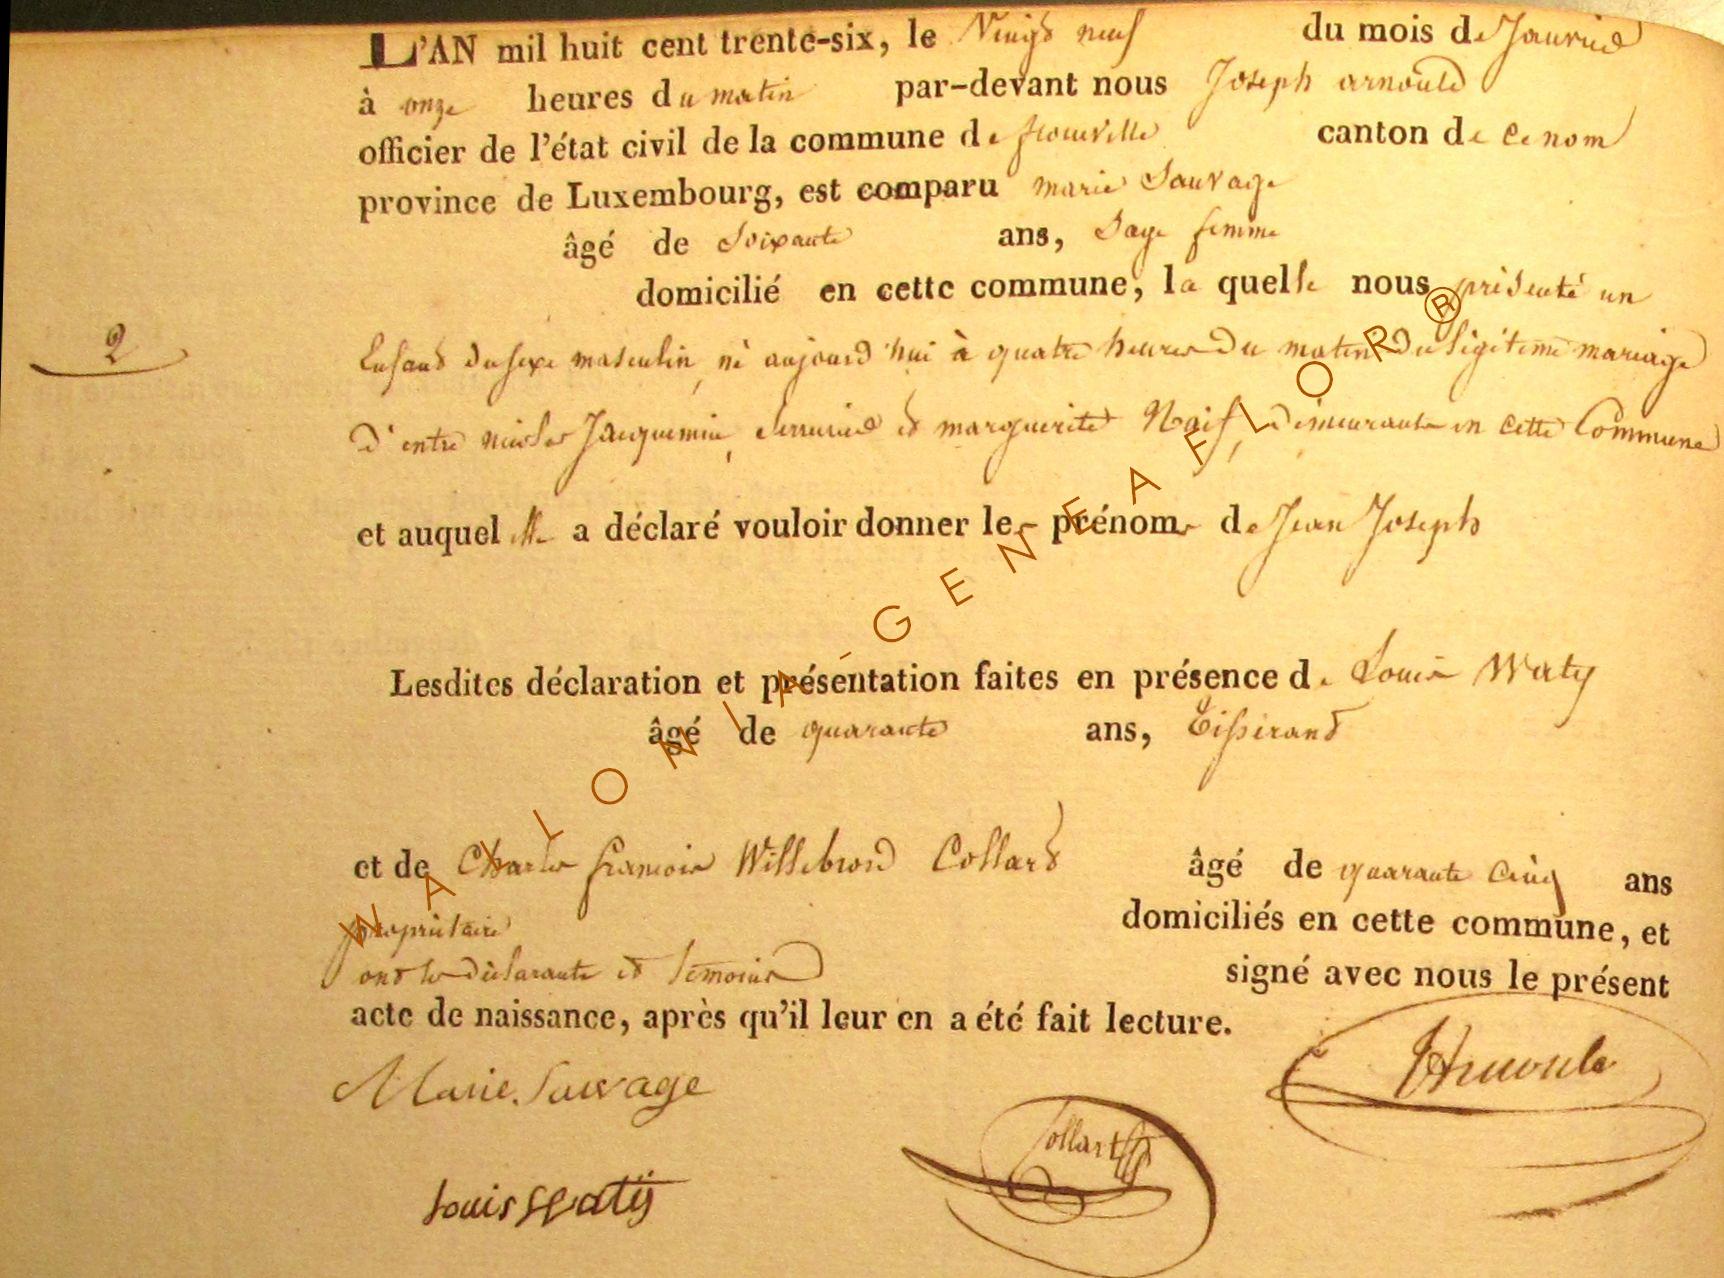 L'AN mil huit cent trente-six, le Vingt neuf du mois de Janvier
à onze heures du matin par-devant nous Joseph arnould
officier de l'état civil de la commune de canton de ce nom
province de Luxembourg, est comparu marie Sauvage
âgé de Soixante ans, Sage femme
domicilié en cette commune, la quelle nous présenté un
2
Enfant du sexe masculin, né aujourd'hui à quatre heures du matin du légitime mariage
d'entre nicolas Jacquemin, Serrurier et marguerite Noif, demeurants en cette Commune
et auquel elle a déclaré vouloir donner les prénoms de Jean Joseph
Lesdites déclaration et présentation faites en présence de Louis Waty
âgé de quarante ans, Tisserand
et de Charles françois Willebrord Collard âgé de quarante cinq ans
propriétaire domiciliés en cette commune, et
ont les déclarante et témoins signé avec nous le présent
acte de naissance, après qu'il leur en a été fait lecture.
Marie Sauvage
Collart
Louis Watÿ
WALLONIA-GENEAFLOR®